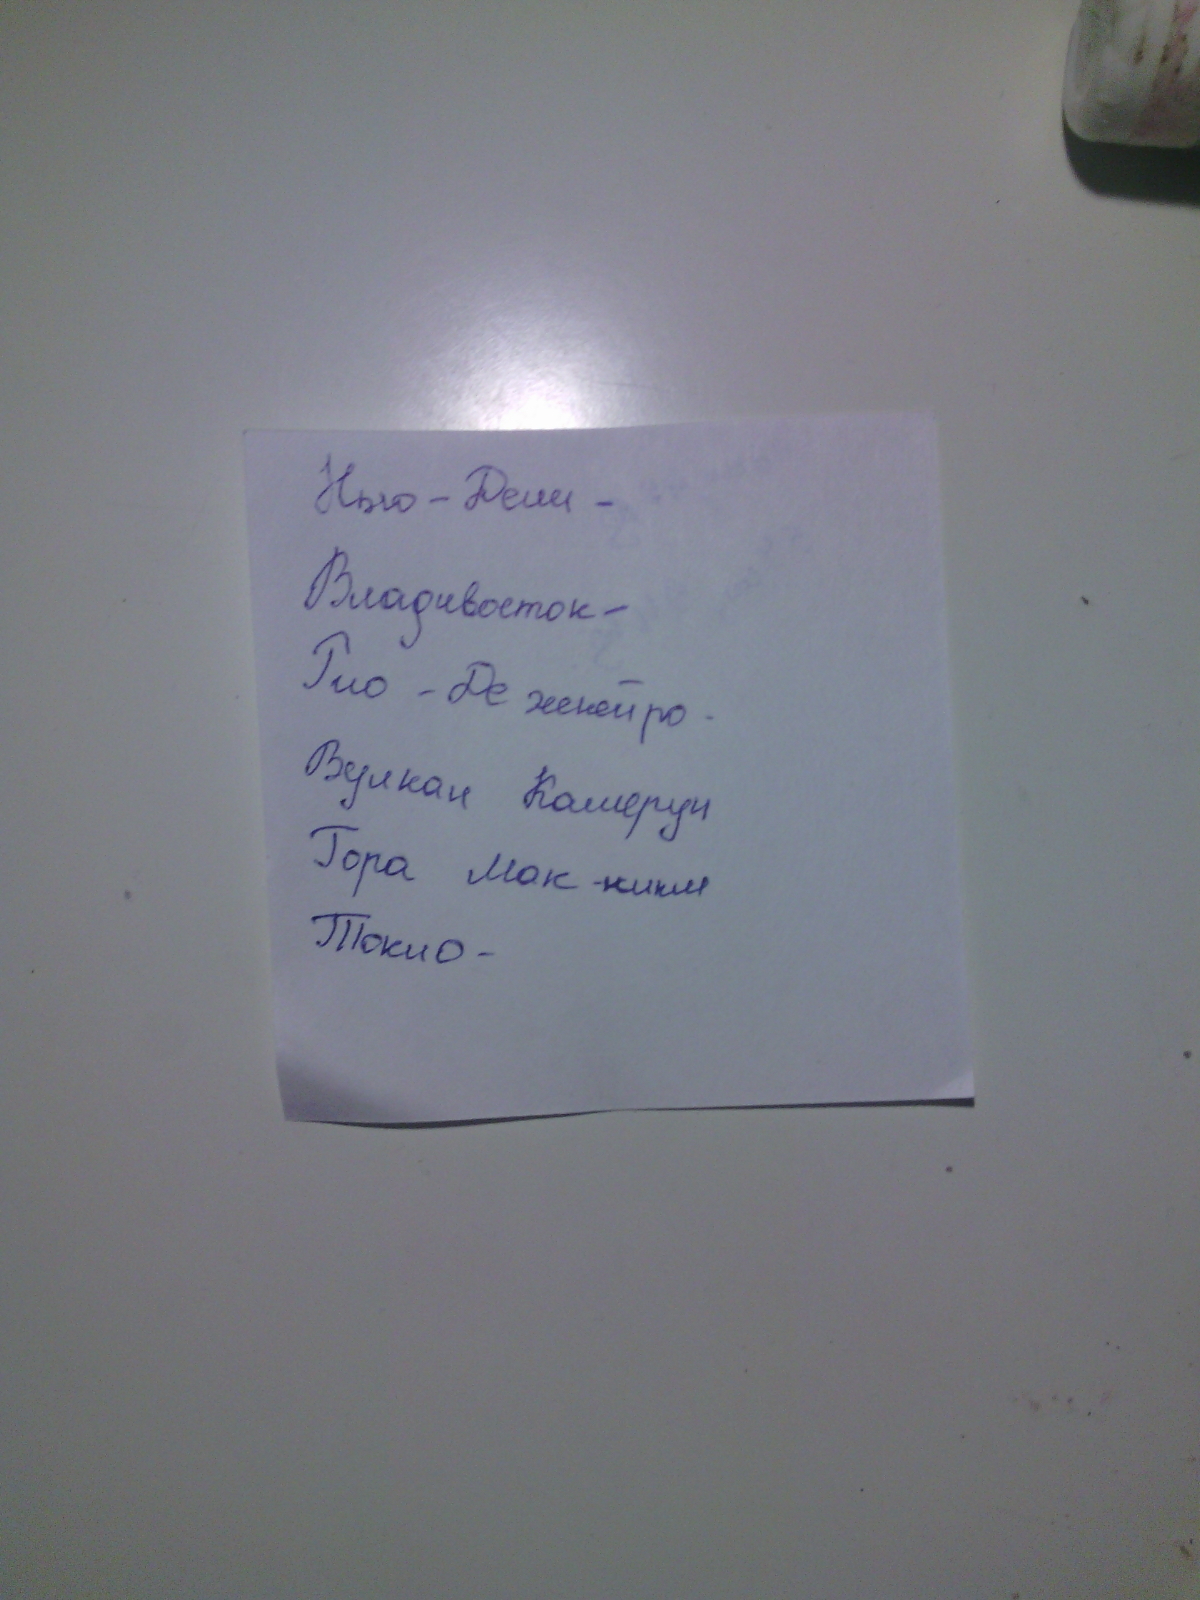 Нью-Дели -
Владивосток -
Рио - Де женейро -
Вулкан Камерун
Гора Мак-кинли
Токио -